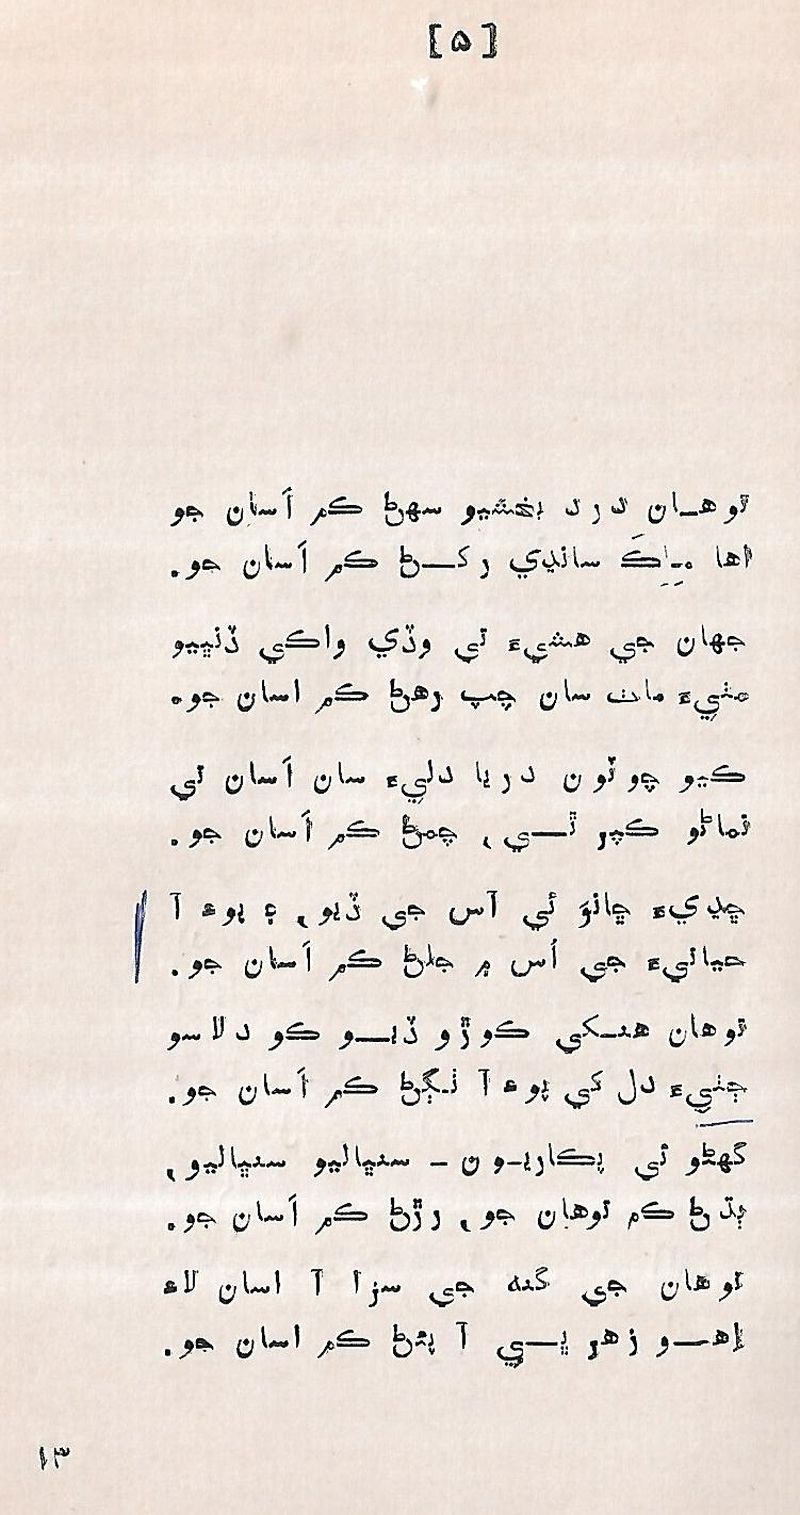 [۵]
توهان درد بخشيو سهڻ ڪم اَسان جو
اها ماڪَ سانڍي رکڻ ڪم اَسان جو.
جهان جي هشيءَ تي وڏي واڪي ڏنڀيو
مٺيءَ ماٺ سان چپ رهڻ ڪم اسان جو.
ڪيو چوٽون درياءَ دليءَ سان اَسان تي
نماڻو ڪپر ٿي، چمڻ ڪم اَسان جو.
ڇڊيءَ ڇانوَ ئي آس جي ڏيو، ۽ پوءِ آ
حياتيءَ جي اُس ۾ جلڻ ڪم اَسان جو.
توهان هٿڪي ڪوڙو ڏيو ڪو دلاسو
جنيءَ دل کي پوءِ آ ٺڳڻ ڪم اَسان جو.
گهڻو ئي پڪاريون - سنڀاليو سنڀاليو،
ٻڌڻ ڪم توهان جو، رڙڻ ڪم اَسان جو.
توهان جي گنه جي سزا آ اسان لاءِ
اِهو زهر ڀي آ پئڻ ڪم اسان جو.
۱۳